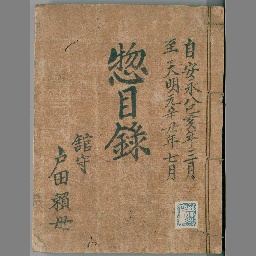 自安永八己亥年三月
至天明元辛丑年七月
惣目録
舘守
戸田頼母